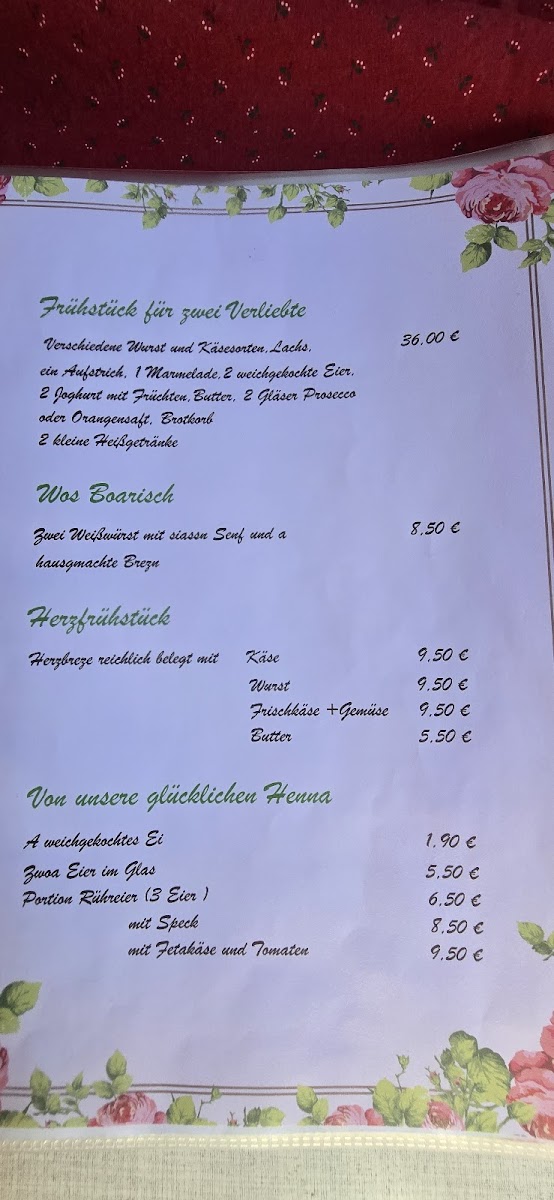 Frühstück für zwei Verliebte
Verschiedene Wurst und Käsesorten, Lachs, 36,00 €
ein Aufstrich, 1 Marmelade, 2 weichgekochte Eier,
2 Joghurt mit Früchten, Butter, 2 Gläser Prosecco
oder Orangensaft, Brotkorb
2 kleine Heißgetränke
Wos Boarisch
Zwei Weißwürst mit siassn Senf und a 8,50 €
hausgmachte Brezn
Herzfrühstück
Herzbreze reichlich belegt mit Käse 9,50 €
Wurst 9,50 €
Frischkäse +Gemüse 9,50 €
Butter 5,50 €
Von unsere glücklichen Henna
A weichgekochtes Ei 1,90 €
Zwoa Eier im Glas 5,50 €
Portion Rühreier (3 Eier ) 6,50 €
mit Speck 8,50 €
mit Fetakäse und Tomaten 9,50 €